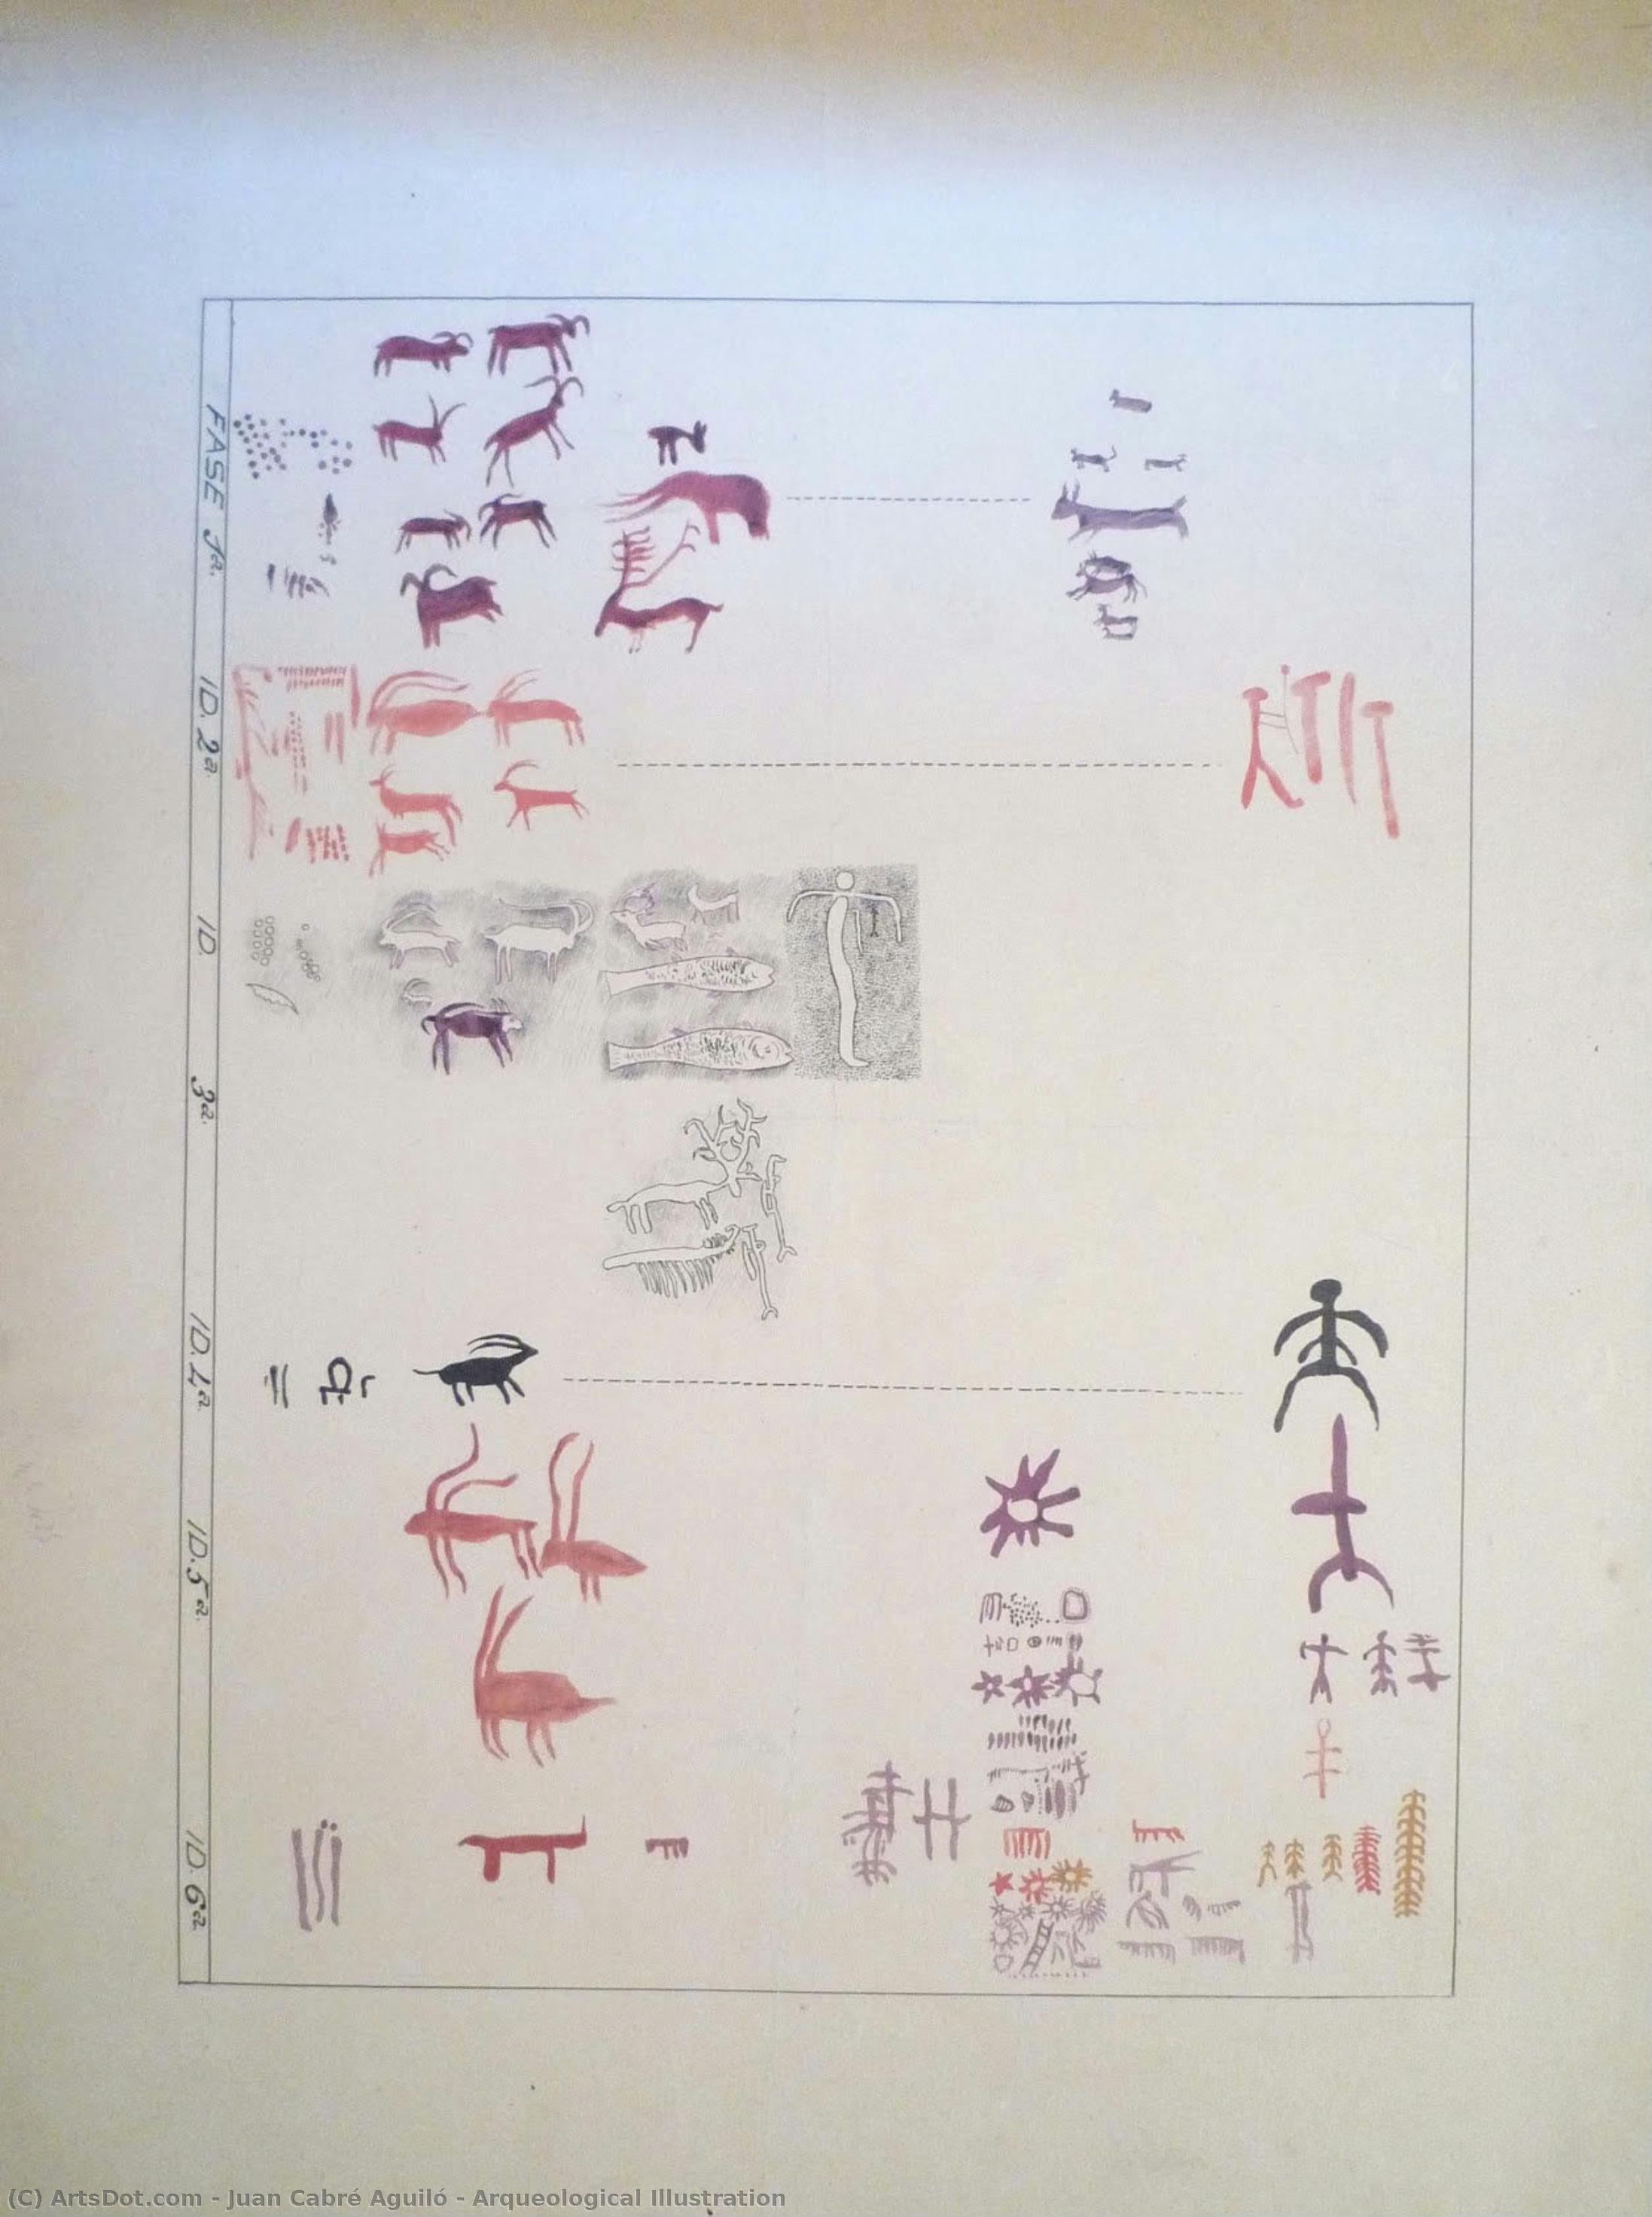 FASE 1a.
ID. 2a.
ID.
3a.
ID. 4a.
ID. 5a.
ID. 6a
(C) ArtsDot.com - Juan Cabré Aguiló - Arqueological Illustration